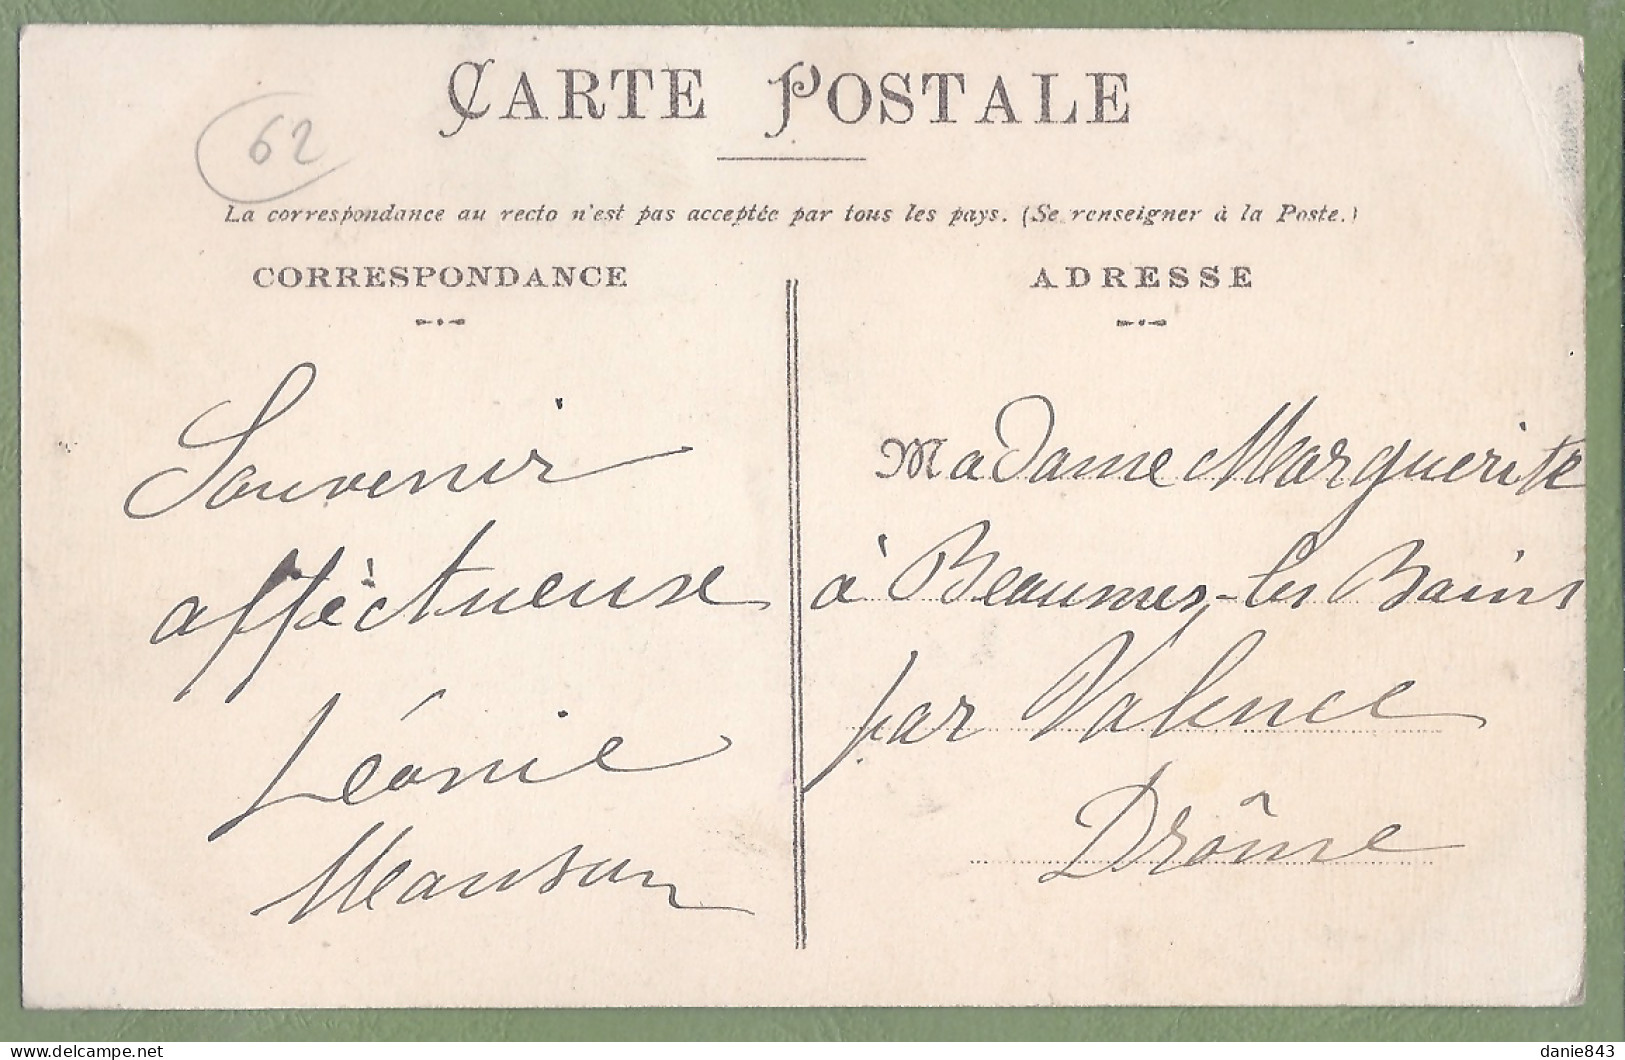 CARTE POSTALE
62
La correspondance au recto n'est pas acceptée par tous les pays. (Se renseigner à la Poste.)
CORRESPONDANCE
Souvenir
afféctueuse
Léonie
ADRESSE
Madame Marguerite
à Beaumes-les Bains
par Valence
Drôme
danie843